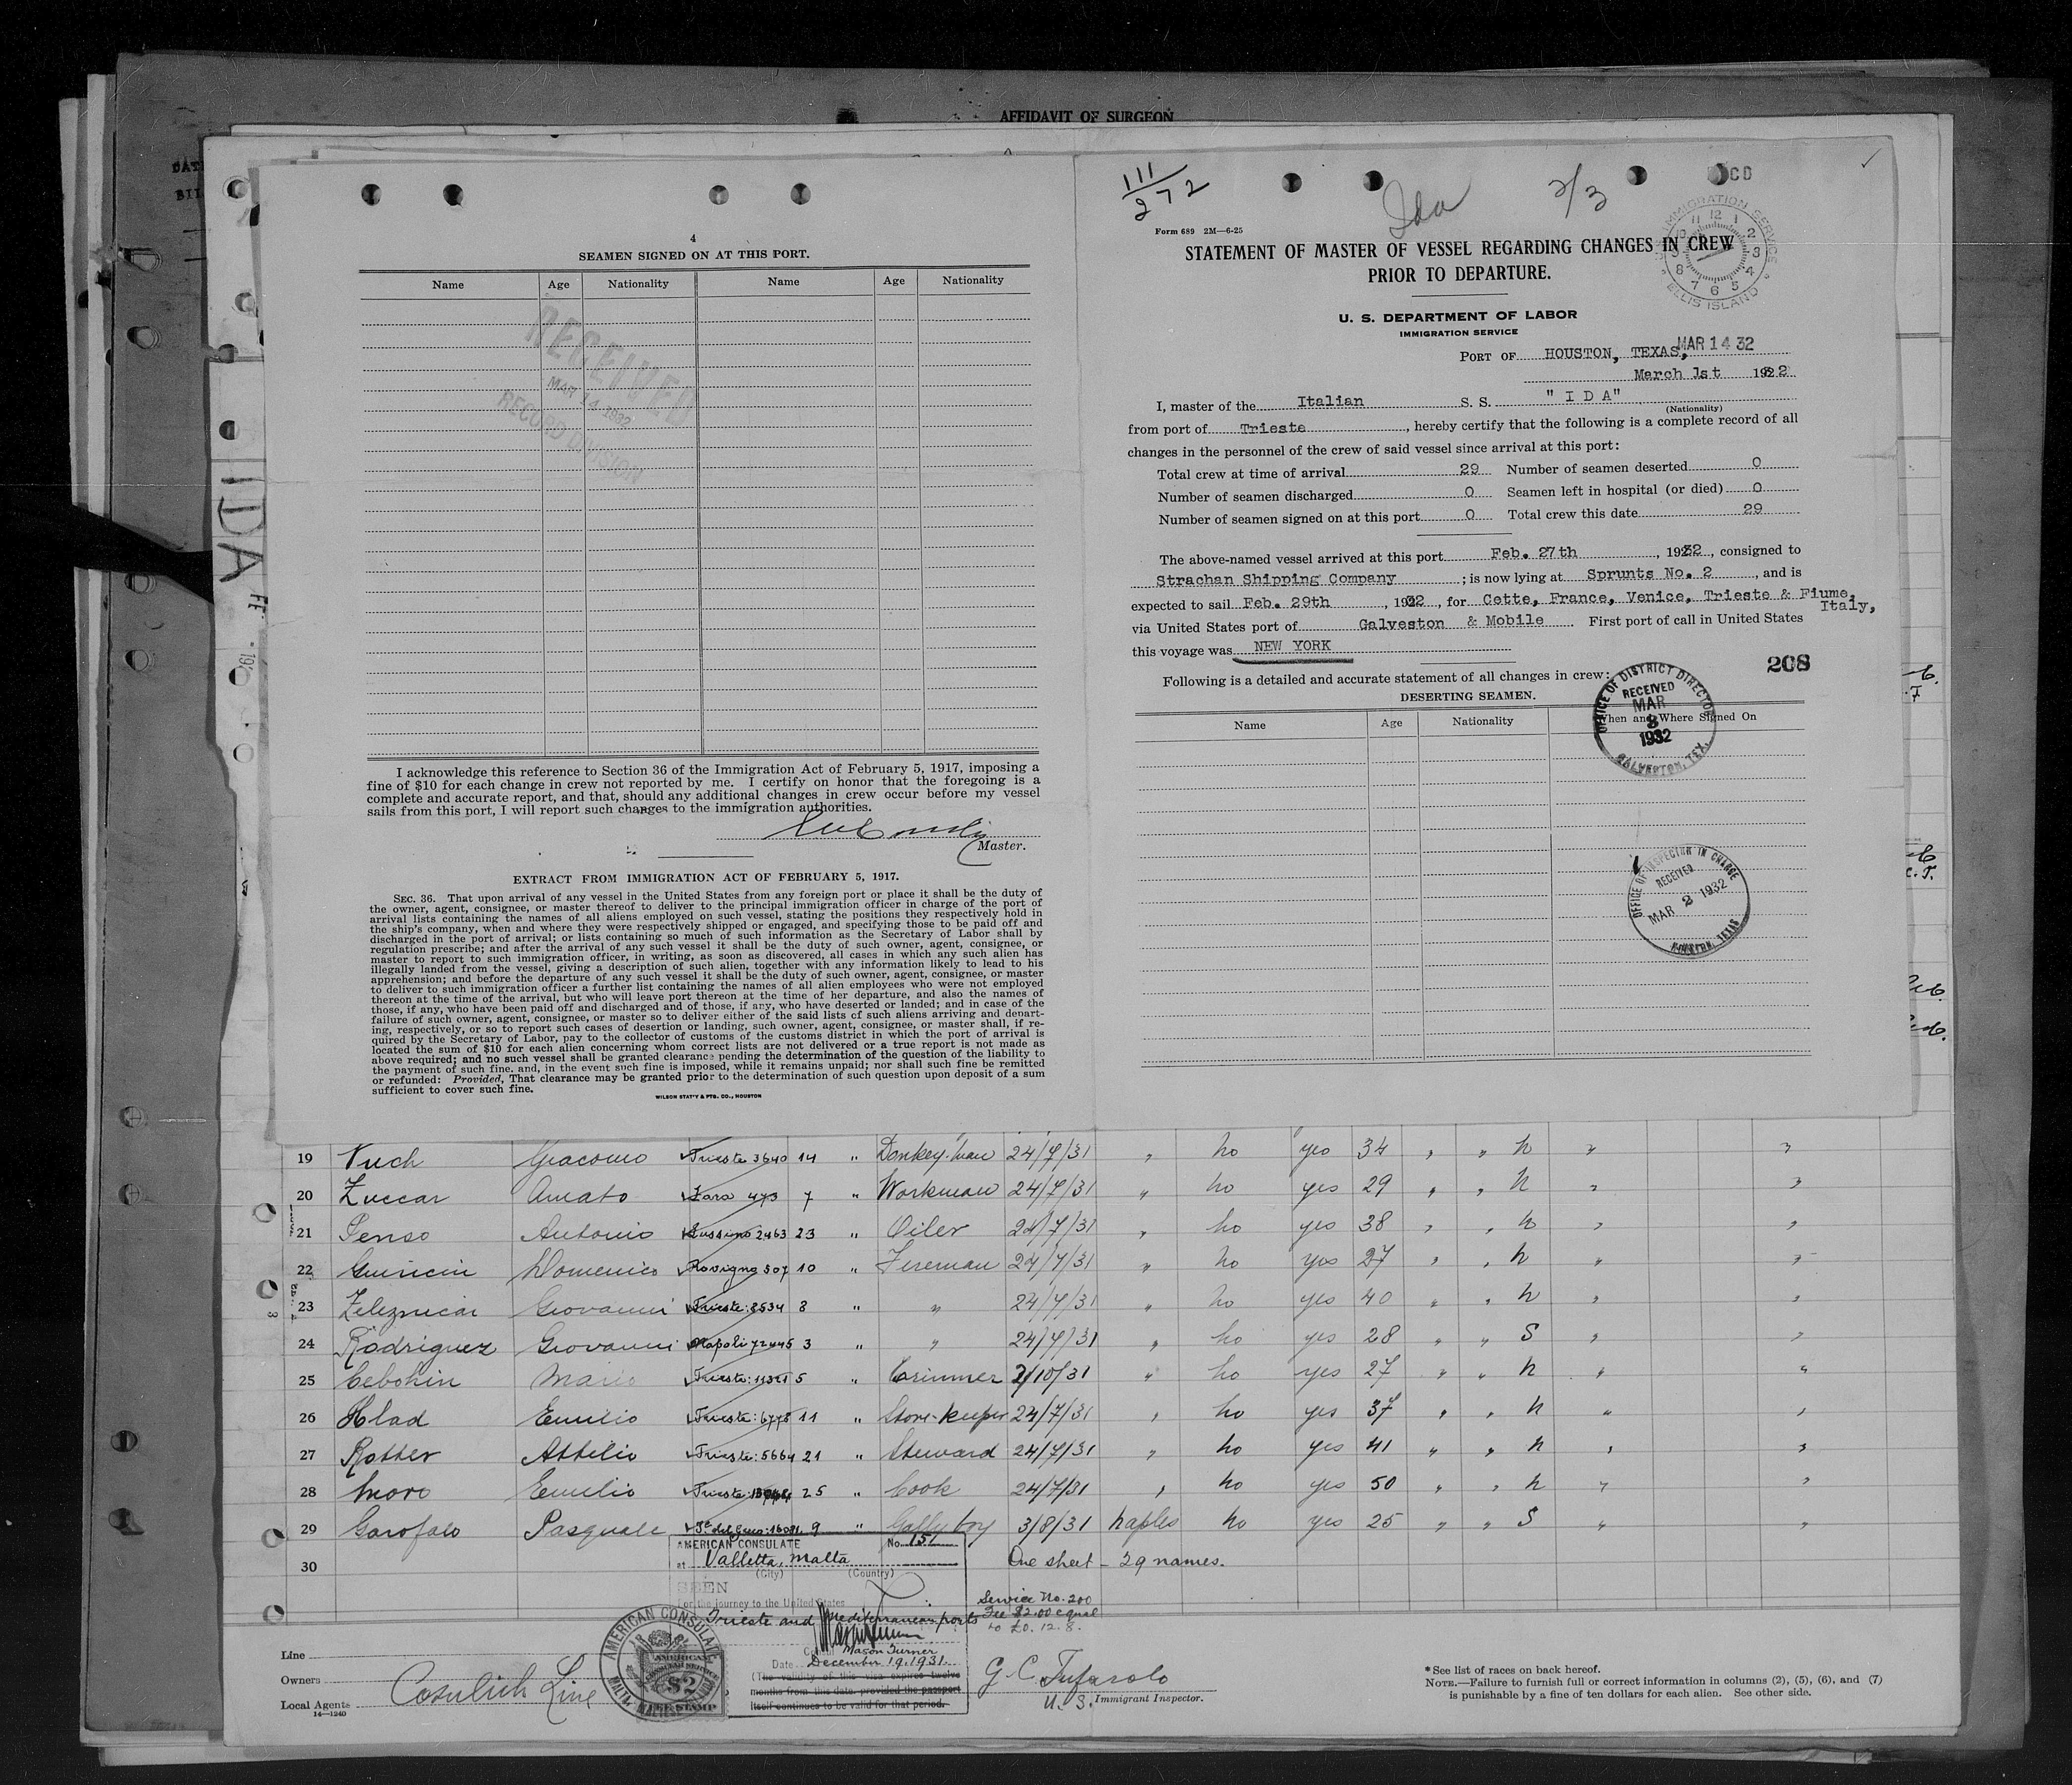 AFFIDAVIT OF SURGEON
4
SEAMEN SIGNED ON AT THIS PORT.
Name Age Nationality Name Age Nationality
RECEIVED
MAR 14 1932
RECORD DIVISION
I acknowledge this reference to Section 36 of the Immigration Act of February 5, 1917, imposing a
fine of $10 for each change in crew not reported by me. I certify on honor that the foregoing is a
complete and accurate report, and that, should any additional changes in crew occur before my vessel
sails from this port, I will report such changes to the immigration authorities.
Master.
EXTRACT FROM IMMIGRATION ACT OF FEBRUARY 5, 1917.
SEC. 36. That upon arrival of any vessel in the United States from any foreign port or place it shall be the duty of
the owner, agent, consignee, or master thereof to deliver to the principal immigration officer in charge of the port of
arrival lists containing the names of all aliens employed on such vessel, stating the positions they respectively hold in
the ship's company, when and where they were respectively shipped or engaged, and specifying those to be paid off and
discharged in the port of arrival; or lists containing so much of such information as the Secretary of Labor shall by
regulation prescribe; and after the arrival of any such vessel it shall be the duty of such owner, agent, consignee, or
master to report to such immigration officer, in writing, as soon as discovered, all cases in which any such alien has
illegally landed from the vessel, giving a description of such alien, together with any information likely to lead to his
apprehension; and before the departure of any such vessel it shall be the duty of such owner, agent, consignee, or master
to deliver to such immigration officer a further list containing the names of all alien employees who were not employed
thereon at the time of the arrival, but who will leave port thereon at the time of her departure, and also the names of
those, if any, who have been paid off and discharged and of those, if any, who have deserted or landed; and in case of the
failure of such owner, agent, consignee, or master so to deliver either of the said lists of such aliens arriving and depart-
ing, respectively, or so to report such cases of desertion or landing, such owner, agent, consignee, or master shall, if re-
quired by the Secretary of Labor, pay to the collector of customs of the customs district in which the port of arrival is
located the sum of $10 for each alien concerning whom correct lists are not delivered or a true report is not made as
above required; and no such vessel shall be granted clearance pending the determination of the question of the liability to
the payment of such fine, and, in the event such fine is imposed, while it remains unpaid; nor shall such fine be remitted
or refunded: Provided, That clearance may be granted prior to the determination of such question upon deposit of a sum
sufficient to cover such fine.
WILSON STAT'Y & PTG. CO., HOUSTON
111/272 Ida 3/3
Form 689 2M—6-25
STATEMENT OF MASTER OF VESSEL REGARDING CHANGES IN CREW
PRIOR TO DEPARTURE.
IMMIGRATION SERVICE ELLIS ISLAND
U. S. DEPARTMENT OF LABOR
IMMIGRATION SERVICE
MAR 14 32
PORT OF HOUSTON, TEXAS,
March 1st 1932
I, master of the Italian S. S. "IDA"
(Nationality)
from port of Trieste, hereby certify that the following is a complete record of all
changes in the personnel of the crew of said vessel since arrival at this port:
Total crew at time of arrival 29 Number of seamen deserted 0
Number of seamen discharged 0 Seamen left in hospital (or died) 0
Number of seamen signed on at this port 0 Total crew this date 29
The above-named vessel arrived at this port Feb. 27th, 1932, consigned to
Strachan Shipping Company; is now lying at Sprunts No. 2, and is
expected to sail Feb. 29th, 1932, for Cette, France, Venice, Trieste & Fiume,
Italy,
via United States port of Galveston & Mobile. First port of call in United States
this voyage was NEW YORK
208
Following is a detailed and accurate statement of all changes in crew:
DESERTING SEAMEN.
Name Age Nationality When and Where Signed On
OFFICE OF DISTRICT DIRECTOR
RECEIVED
MAR
8
1932
GALVESTON, TEX.
OFFICE OF INSPECTOR IN CHARGE
RECEIVED
MAR 2 1932
HOUSTON, TEXAS
IDA
19 Vuch Giacomo Trieste 3640 14 " Donkey-man 24/7/31 " no yes 34 " " N " "
20 Zuccar Amato Zara 473 7 " Workman 24/7/31 " no yes 29 " " N " "
21 Penso Antonio Lussino 2463 23 " Oiler 24/7/31 " no yes 38 " " N " "
22 Domenico Rovigno 507 10 " Fireman 24/7/31 " no yes 27 " " N " "
23 Zeleznicar Giovanni Trieste: 8534 8 " " 24/7/31 " no yes 40 " " N " "
24 Rodriguez Giovanni Napoli 72445 3 " " 24/7/31 " no yes 28 " " S " "
25 Cebohin Mario Trieste: 11321 5 " Trimmer 2/10/31 " no yes 27 " " N " "
26 Hlad Emilio Trieste: 6778 11 " Store-keeper 24/7/31 " no yes 37 " " N " "
27 Rotter Attilio Trieste: 5664 21 " Steward 24/7/31 " no yes 41 " " N " "
28 Moro Emilio Trieste: 25 " Cook 24/7/31 " no yes 50 " " N " "
29 Garofalo Pasquale 9 " Gally boy 3/8/31 Naples no yes 25 " " S " "
30 One sheet - 29 names.
AMERICAN CONSULATE No. 151
at Valletta, Malta
(City) (Country)
SEEN
For the journey to the United States
Trieste and Mediterranean ports
Mason Turner
Date December 19, 1931.
(The validity of this visa expires twelve
months from this date, provided the passport
itself continues to be valid for that period.
Service No. 200
Fee $2.00 equal
to £0. 12. 8.
AMERICAN CONSULATE
AMERICAN
CONSULAR SERVICE
$2
FEE STAMP
Line
Owners
Local Agents
Cosulich Line
14—1240
G. C. Tufarolo
U. S. Immigrant Inspector.
* See list of races on back hereof.
NOTE.—Failure to furnish full or correct information in columns (2), (5), (6), and (7)
is punishable by a fine of ten dollars for each alien. See other side.